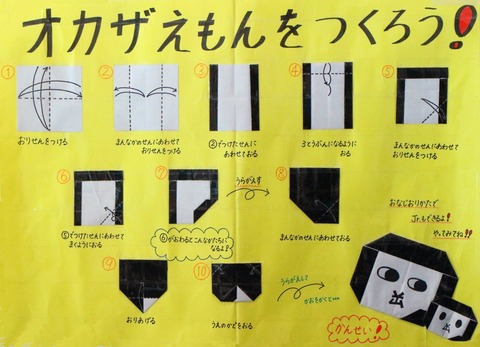 オカザえもんをつくろう!
①
おりせんをつける
②
まんなかのせんにあわせて
おりせんをつける
③
②でつけたせんに
あわせておる
④
3とうぶんになるように
おる
⑤
まんなかのせんにあわせて
おりせんをつける
⑥
⑤でつけたせんにあわせて
まくようにおる
⑦
⑥がおわるとこんなかたちに
なるよ!
うらがえす
⑧
まんなかのせんにあわせておる
おなじおりかたで
Jr.もできるよ!
やってみてね!!
⑨
おりあげる
⑩
うえのかどをおる
うらがえして
かおをかくと…
かんせい!